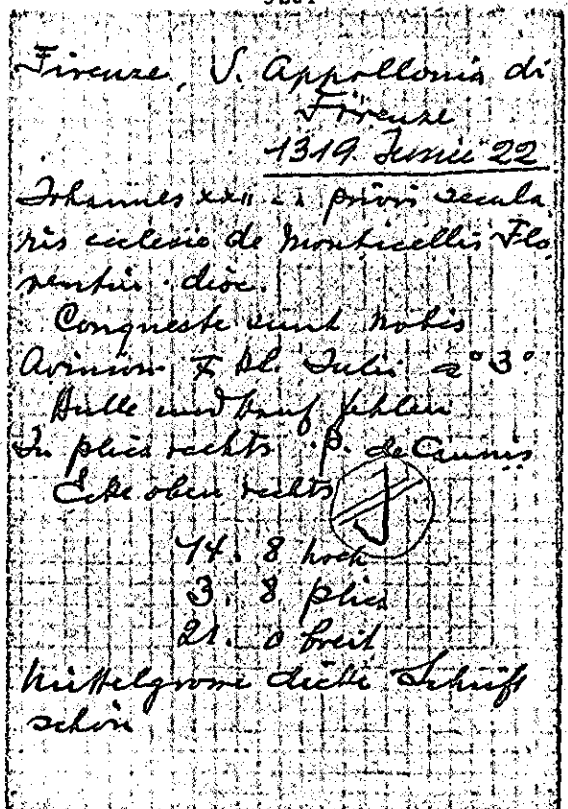 Firenze, S. Appollonia di
Firenze
1319 Junii 22
Johannes XXII .. priori secula
ris ecclesie de Monticellis Flo
rentin. dioc.
Conqueste sunt nobis
Avinion X kl. Julii a° 3°
Bulle und Hanf fehlen
In plica rechts .P. de Caunis
Ecke oben rechts J
14. 8 hoch
3. 8 plica
21. 0 breit
Mittelgrosse dicke Schrift
schön